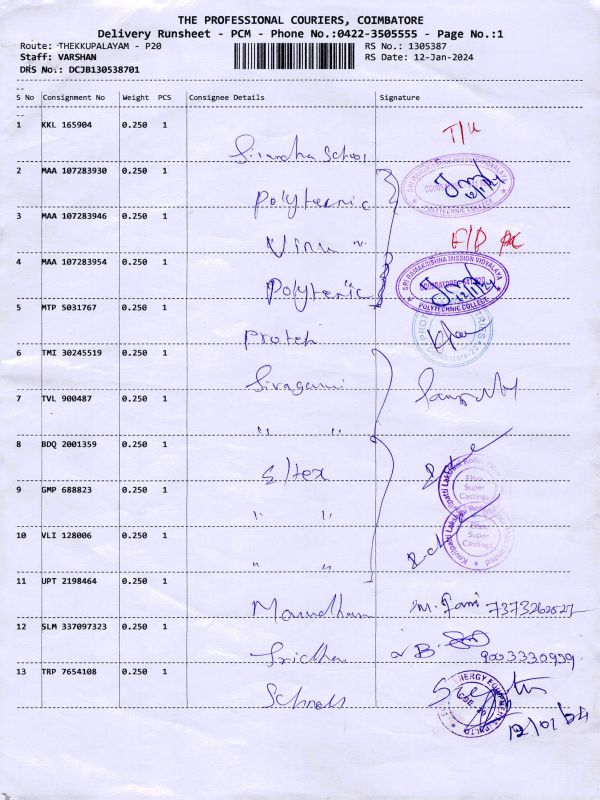 THE PROFESSIONAL COURIERS, COIMBATORE
Delivery Runsheet - PCM - Phone No.:0422-3505555 - Page No.:1
Route: THEKKUPALAYAM - P20 RS No.: 1305387
Staff: VARSHAN RS Date: 12-Jan-2024
DRS No.: DCJB130538701
S No Consignment No Weight PCS Consignee Details Signature
1 KKL 165904 0.250 1
T/U
School
2 MAA 107283930 0.250 1
SRI RAMAKRISHNA MISSION VIDYALAYA
POLYTECHNIC COLLEGE
Polyternic
3 MAA 107283946 0.250 1
Vinu
4 MAA 107283954 0.250 1
SRI RAMAKRISHNA MISSION VIDYALAYA
POLYTECHNIC COLLEGE
12/1/24
Polyternic
5 MTP 5031767 0.250 1
Coimbatore
Proteh
6 TMI 30245519 0.250 1
Siragami
7 TVL 900487 0.250 1
" "
8 BDQ 2001359 0.250 1
Eltex
Eltex
Super
Castings
9 GMP 688823 0.250 1
" "
Eltex
Super
Castings
Limited
10 VLI 128006 0.250 1
" "
11 UPT 2198464 0.250 1
M. 7373262527
12 SLM 337097323 0.250 1
Sridha B. 9003330939
13 TRP 7654108 0.250 1
ENERGY
12/01/24